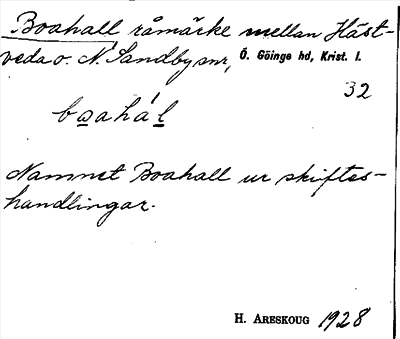 Boahall råmärke mellan Häst-
veda o. N. Sandby snr, Ö. Göinge hd, Krist. l.
32
boahál
Namnet Boahall ur skiftes-
handlingar.
H. ARESKOUG 1928